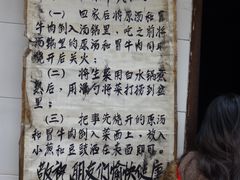 (一) 回家后将原汤和冒
牛肉倒入汤锅里，吃之前将
汤锅里的原汤和冒牛肉用
烧开后关火；
(二) 将生菜用打水锅煮
熟后，用漏勺将菜打捞到盆
里；
(三) 把事先烧开的原汤
和冒牛肉倒入菜面上，放入
小葱和豆豉洒在表面即可。
敬神 朋友们愉快健康